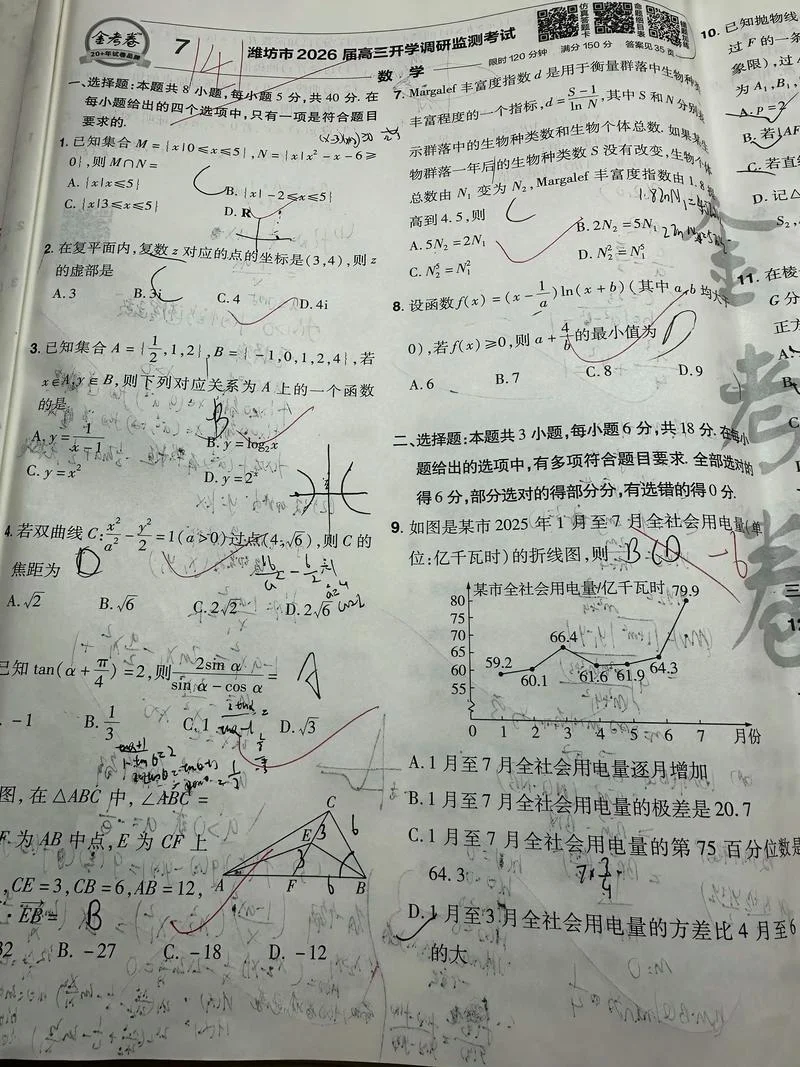 金考卷
20+年试卷品牌
7
141
潍坊市2026届高三开学调研监测考试
数 学
限时120分钟 满分150分 答案见35页
仿真答题卡
一、选择题:本题共8小题,每小题5分,共40分.在
每小题给出的四个选项中,只有一项是符合题目
要求的.
1.已知集合M={x|0≤x≤5},N={x|x²-x-6≥
0},则M∩N=
A.{x|x≤5}
B.{x|-2≤x≤5}
C.{x|3≤x≤5}
D.R
2.在复平面内,复数z对应的点的坐标是(3,4),则z
的虚部是
A.3
B.3i
C.4
D.4i
3.已知集合A={1/2,1,2},B={-1,0,1,2,4},若
x∈A,y∈B,则下列对应关系为A上的一个函数
的是
B
A.y=1/(x-1)
B.y=log₂x
C.y=x²
D.y=2ˣ
4.若双曲线C:x²/a²-y²/2=1(a>0)过点(4,√6),则C的
焦距为 D
A.√2
B.√6
C.2√2
D.2√6
已知tan(α+π/4)=2,则2sin α/(sin α-cos α)= A
.-1
B.1/3
C.1
D.√3
图,在△ABC中,∠ABC=
F为AB中点,E为CF上
,CE=3,CB=6,AB=12,
·EB= B
32
B.-27
C.-18
D.-12
C
E
3
6
3
A
F
6
B
7.Margalef丰富度指数d是用于衡量群落中生物种类
丰富程度的一个指标,d=(S-1)/ln N,其中S和N分别表
示群落中的生物种类数和生物个体总数.如果某生
物群落一年后的生物种类数S没有改变,生物个体
总数由N₁变为N₂,Margalef丰富度指数由1.8提
高到4.5,则
A.5N₂=2N₁
B.2N₂=5N₁
C.N₂⁵=N₁²
D.N₂²=N₁⁵
8.设函数f(x)=(x-1/a)ln(x+b)(其中a,b均大于
0),若f(x)≥0,则a+4/b的最小值为 D
A.6
B.7
C.8
D.9
二、选择题:本题共3小题,每小题6分,共18分.在每小
题给出的选项中,有多项符合题目要求.全部选对的
得6分,部分选对的得部分分,有选错的得0分.
9.如图是某市2025年1月至7月全社会用电量(单
位:亿千瓦时)的折线图,则 B.CD
-6
某市全社会用电量/亿千瓦时
79.9
80
75
70
65
60
55
59.2
60.1
66.4
61.6
61.9
64.3
0 1 2 3 4 5 6 7 月份
A.1月至7月全社会用电量逐月增加
B.1月至7月全社会用电量的极差是20.7
C.1月至7月全社会用电量的第75百分位数是
64.3
7×3/4
D.1月至3月全社会用电量的方差比4月至6
的大
10.已知抛物线
过F的一条
象限),过A
为A₁,B₁,
A.p=2
B.若|AF
C.若直线
D.记△
S₂,
11.在棱
G分
正方
A.
B.
C
三
12
金考卷